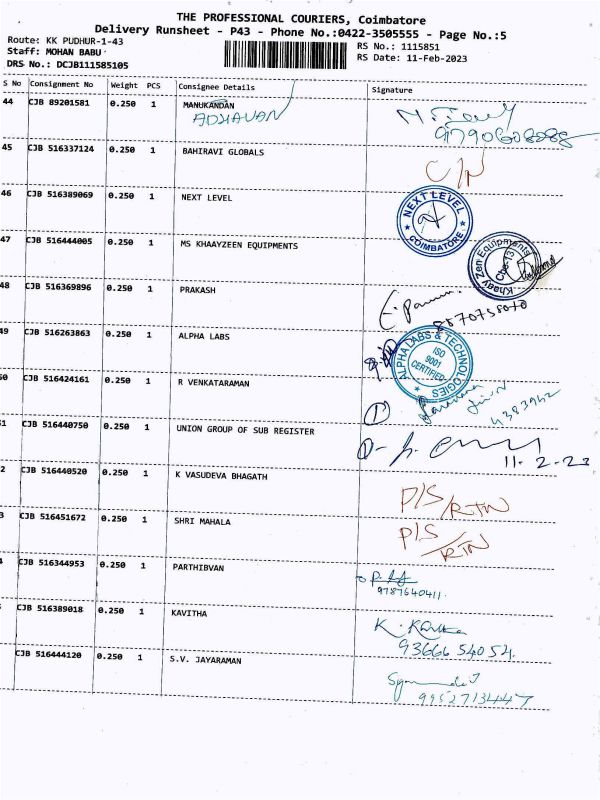 THE PROFESSIONAL COURIERS, Coimbatore
Delivery Runsheet - P43 - Phone No.:0422-3505555 - Page No.:5
Route: KK PUDHUR-1-43
Staff: MOHAN BABU
DRS No.: DCJB111585105
RS No.: 1115851
RS Date: 11-Feb-2023
S No Consignment No Weight PCS Consignee Details Signature
44 CJB 89201581 0.250 1 MANUKANDAN
ADHAVAN
45 CJB 516337124 0.250 1 BAHIRAVI GLOBALS
46 CJB 516389069 0.250 1 NEXT LEVEL
NEXT LEVEL
COIMBATORE
47 CJB 516444005 0.250 1 MS KHAAYZEEN EQUIPMENTS
Khaay Zen Equipments
48 CJB 516369896 0.250 1 PRAKASH
49 CJB 516263863 0.250 1 ALPHA LABS
ALPHA LABS & TECHNOLOGIES
ISO
9001
CERTIFIED
50 CJB 516424161 0.250 1 R VENKATARAMAN
51 CJB 516440750 0.250 1 UNION GROUP OF SUB REGISTER
11-2-23
2 CJB 516440520 0.250 1 K VASUDEVA BHAGATH
P/S/RTN
3 CJB 516451672 0.250 1 SHRI MAHALA
P/S/RTN
CJB 516344953 0.250 1 PARTHIBVAN
9787640411
CJB 516389018 0.250 1 KAVITHA
K. Kavitha
9366654054
CJB 516444120 0.250 1 S.V. JAYARAMAN
9952713447